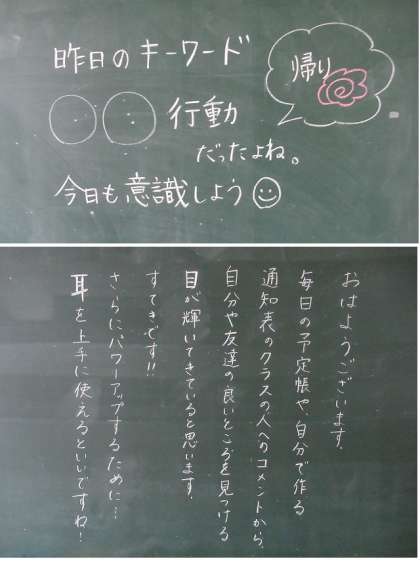 昨日のキーワード
◯◯行動
だったよね。
今日も意識しよう☺
帰り
おはようございます。
毎日の予定帳や、自分で作る
通知表のクラスの人へのコメントから、
自分や友達の良いところを見つける
目が輝いてきていると思います。
すてきです!!
さらにパワーアップするために…
耳を上手に使えるといいですね!